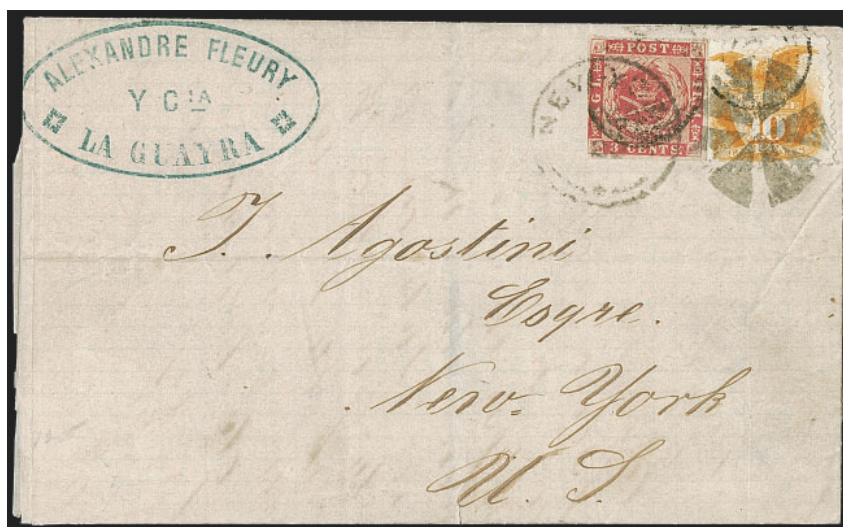 ALEXANDRE FLEURY
Y CIA
LA GUAYRA
NEW Y
POST
3 CENTS.
10
J. Agostini
Esqre.
New-York
U. S.